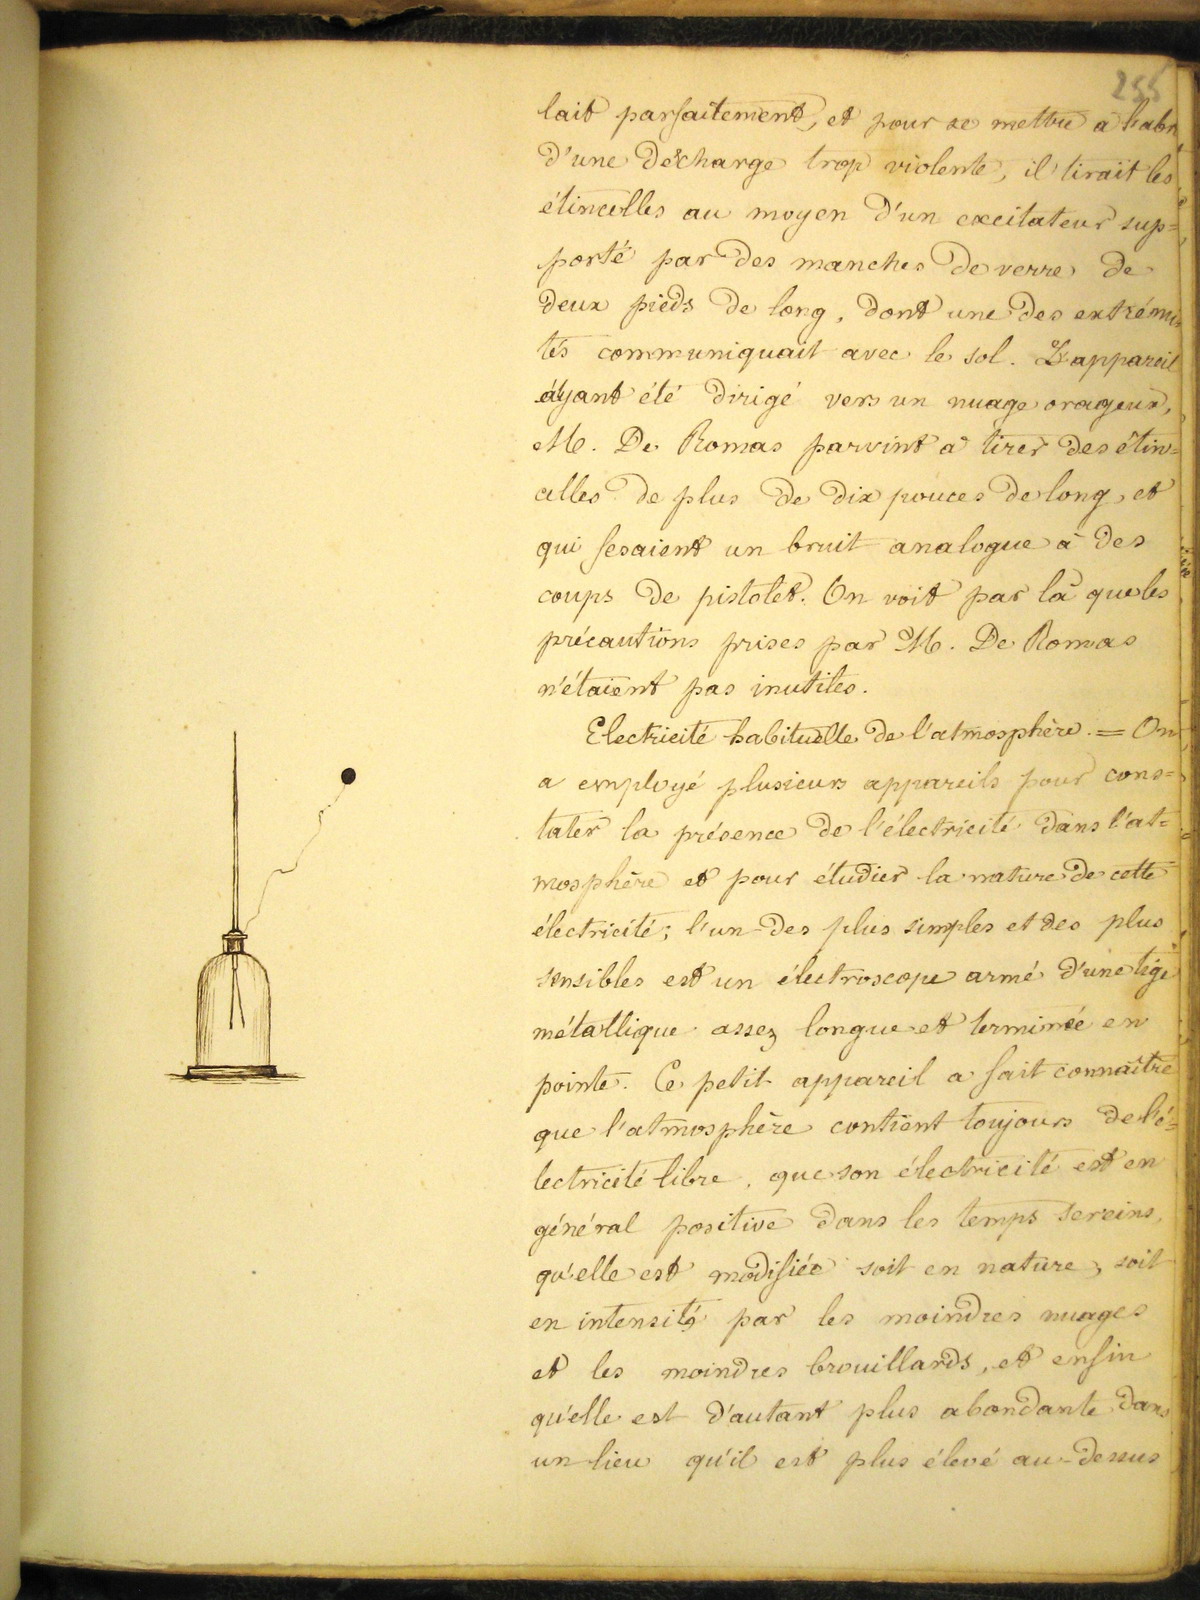 255
lait parfaitement, et pour se mettre à l'abri
d'une décharge trop violente, il tirait les
étincelles au moyen d'un excitateur sup=
porté par des manches de verre de
deux pieds de long, dont une des extrémi
tés communiquait avec le sol. L'appareil
ayant été dirigé vers un nuage orageux,
M. De Romas parvint à tirer des étin=
celles de plus de dix pouces de long, et
qui fesaient un bruit analogue à des
coups de pistolet. On voit par là que les
précautions prises par M. De Romas
n'étaient pas inutiles.
Electricité habituelle de l'atmosphère. = On
a employé plusieurs appareils pour cons=
tater la présence de l'électricité dans l'at=
mosphère et pour étudier la nature de cette
électricité; l'un des plus simples et des plus
sensibles est un électroscope armé d'une tige
métallique assez longue et terminée en
pointe. Ce petit appareil a fait connaître
que l'atmosphère contient toujours de l'é=
lectricité libre, que son électricité est en
général positive dans les temps sereins,
qu'elle est modifiée soit en nature, soit
en intensité par les moindres nuages
et les moindres brouillards, et enfin
qu'elle est d'autant plus abondante dans
un lieu qu'il est plus élevé au-dessus